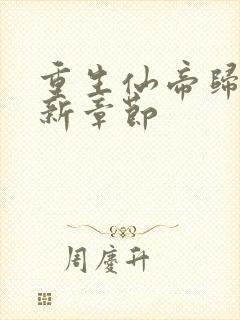 重生仙帝歸
新章節
周慶升